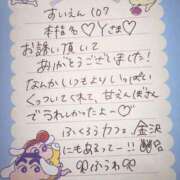 すいえん(07
本指名♡Yさま♡
お誘い頂いて
ありがとうございました!
なんかいつもよりいっぱい
くっついてくれて、甘えんぼさん
でうれしかったよー♡
ふくろうカフェ金沢
にもあるってー!!
ふうか